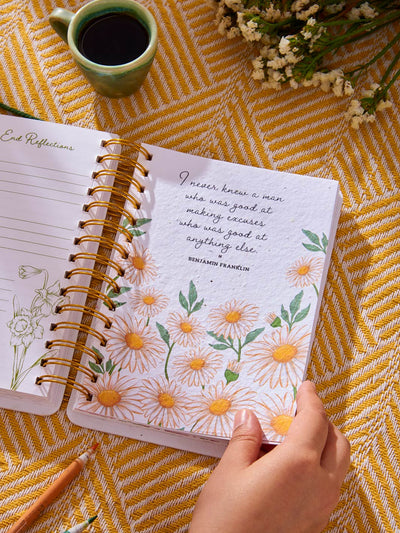 End Reflections
I never knew a man
who was good at
making excuses
who was good at
anything else.
BENJAMIN FRANKLIN